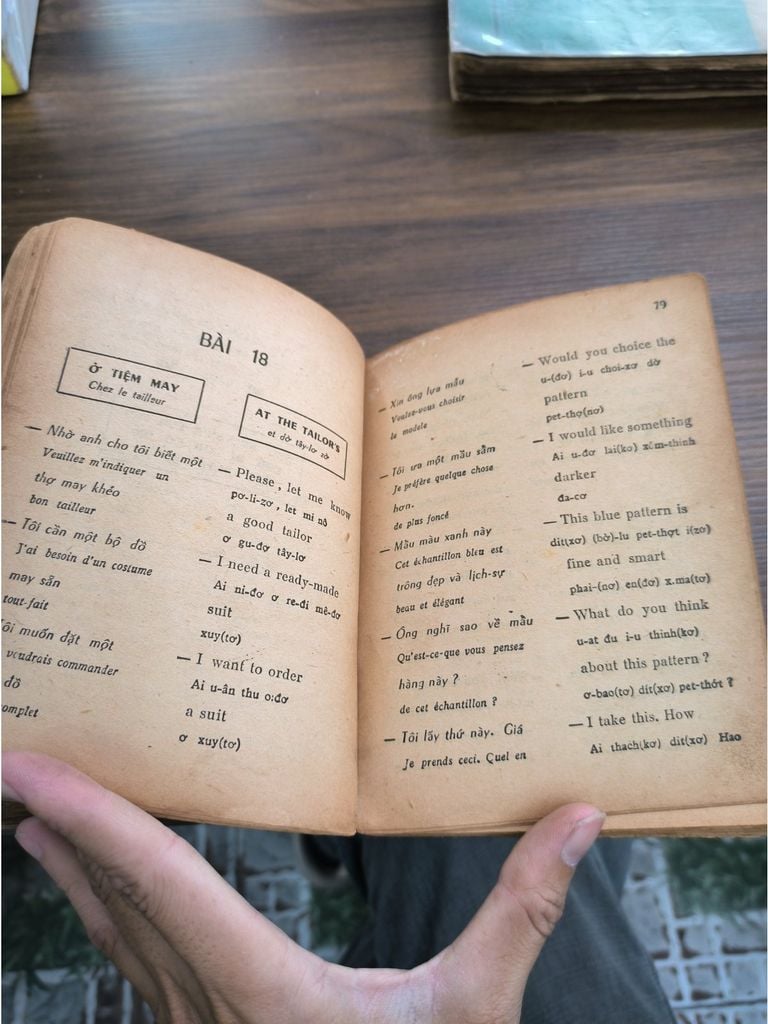 BÀI 18
Ở TIỆM MAY
Chez le tailleur
— Nhờ anh cho tôi biết một
Veuillez m'indiquer un
thợ may khéo
bon tailleur
— Tôi cần một bộ đồ
J'ai besoin d'un costume
may sẵn
tout-fait
ôi muốn đặt một
voudrais commander
đồ
omplet
AT THE TAILOR'S
et dờ tây-lơ zờ
— Please, let me know
pơ-li-zơ, let mi nô
a good tailor
ơ gu-đơ tây-lơ
— I need a ready-made
Ai ni-đơ ơ re-đi mê-đơ
suit
xuy(tơ)
— I want to order
Ai u-ân thu o:đơ
a suit
ơ xuy(tơ)
79
— Xin ông lựa mẫu
Voulez-vous choisir
le modele
— Tôi ưa một mầu sẫm
Je préfère quelque chose
hơn.
de plus foncé
— Mẫu màu xanh này
Cet échantillon bleu est
trông đẹp và lịch-sự
beau et élégant
— Ông nghĩ sao về mầu
Qu'est-ce-que vous pensez
hàng này ?
de cet échantillon ?
— Tôi lấy thứ này. Giá
Je prends ceci. Quel en
— Would you choice the
u-(đơ) i-u choi-xơ dờ
pattern
pet-thợ(nơ)
— I would like something
Ai u-đơ lai(kơ) xăm-thinh
darker
đa-cơ
— This blue pattern is
dit(xơ) (bờ)-lu pet-thợt i(zơ)
fine and smart
phai-(nơ) en(đơ) x.ma(tơ)
— What do you think
u-at đu i-u thinh(kơ)
about this pattern ?
ơ-bao(tơ) dít(xơ) pet-thớt ?
— I take this. How
Ai thach(kơ) dit(xơ) Hao